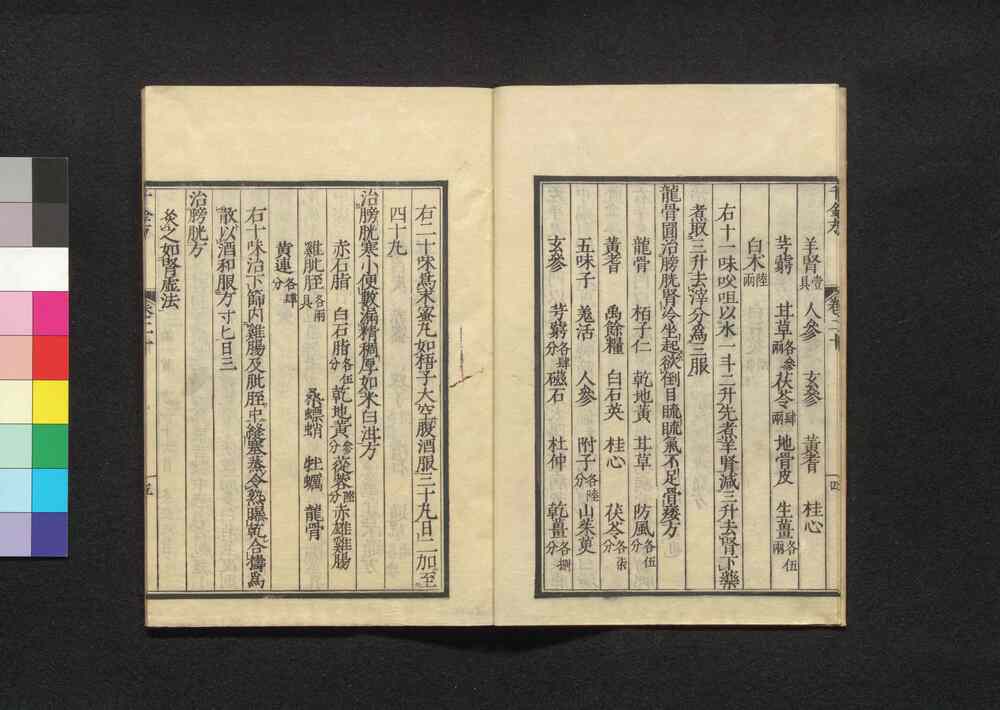 千金方 卷二十 四
羊腎壹具 人參 玄參 黃耆 桂心
芎藭 甘草各參兩 茯苓肆兩 地骨皮 生薑各伍兩
白朮陸兩
右十一味㕮咀以水一斗二升先煮羊腎減三升去腎下藥
煮取三升去滓分爲三服
龍骨圓治膀胱腎冷坐起欲倒目䀮䀮氣不足骨痿方
龍骨 栢子仁 乾地黃 甘草 防風各伍分
黃耆 禹餘糧 白石英 桂心 茯苓各柒分
五味子 羌活 人參 附子各陸分 山茱萸
玄參 芎藭各肆分 磁石 杜仲 乾薑各捌分
右二十味爲末蜜丸如梧子大空腹酒服三十丸日二加至
四十丸
治膀胱寒小便數漏精稠厚如米白泔方
赤石脂 白石脂各伍分 乾地黃參分 蓯蓉陸分 赤雄雞腸
雞肶胵各兩具 桑螵蛸 牡蠣 龍骨
黃連各肆分
右十味治下篩内雞腸及肶胵中縫塞蒸令熟曝乾合擣爲
散以酒和服方寸匕日三
治膀胱方
灸之如腎虛法
千金方 卷二十 五